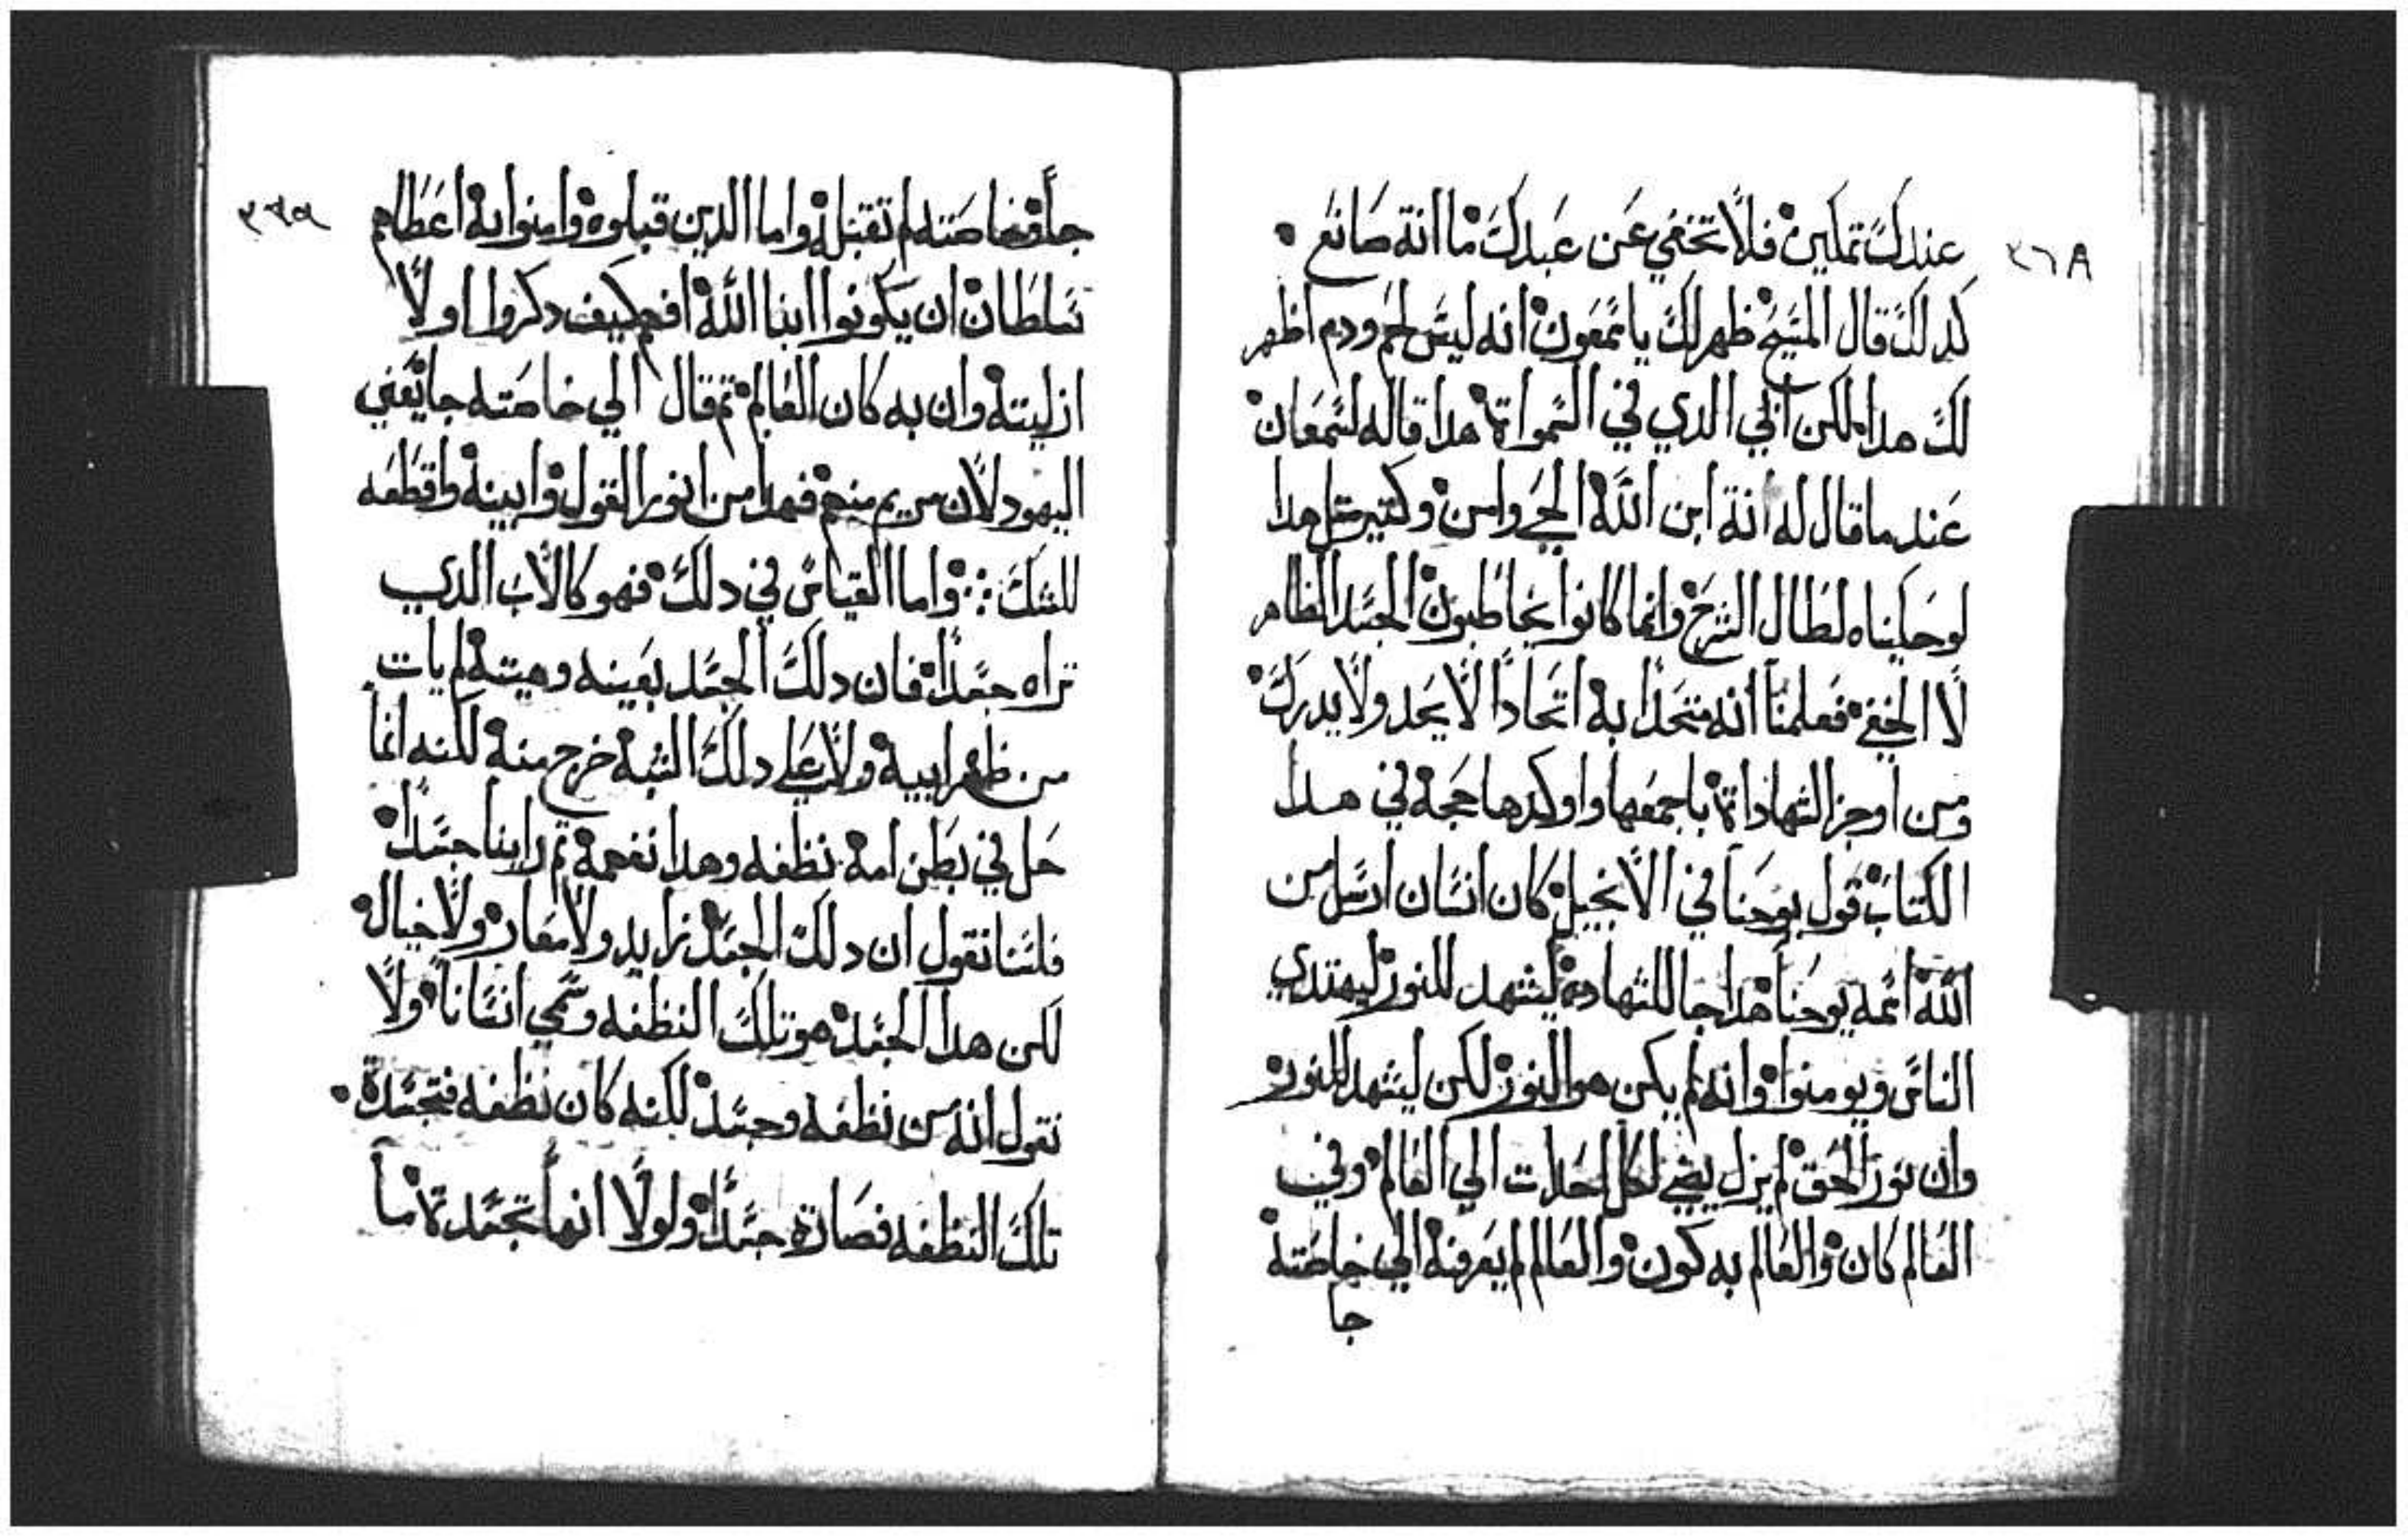 ٢٦٨
عندك تملين فلا تخفي عن عبدك ما انة صانع
كدلك قال المسيح ظهر لك يا شمعون انه ليس لحم ودم اظهر
لك هدا لكن ابي الدي في السمواة هدا قاله لشمعان
عند ما قال له انة ابن الله الحي وامن وكتير متل هدا
لو حكيناه لطال الشرح وانما كانوا يخاطبون الجسد الظاهر
لا الخفي فعلمنا انه متحدا به اتحادا لا يحد ولا يدرك
ومن اوجز الشهاداة باجمعها واوكدها حجة في هدا
الكتاب قول يوحنا في الانجيل كان انسان ارسل من
الله اسمه يوحنا هدا جا للشهاده ليشهد للنور ليهتدي
الناس ويومنوا وانه لم يكن هو النور لكن ليشهد للنور
وان نور الحق لم يزل يضي لكل احد ات الي العالم وفي
العالم كان والعالم به كون والعالم لم يعرفه الي خاصته
جا
جا وخاصته لم تقبله واما الدين قبلوه وامنوا به اعطاهم
سلطان ان يكونوا ابنا الله افهم كيف دكروا اولا
ازليته وان به كان العالم تم قال الي خاصته جا يعني
اليهود لان مريم منهم فهدا من انور القول وابينه واقطعه
للشك واما القياس في دلك فهو كالاب الدي
تراه جسدا فان دلك الجسد بعينه وهيته لم يات
من ظهر ابيه ولا علي دلك الشبه خرج منه لكنه انما
حل في بطن امه نظفه وهدا نفهمه تم راينا جسدا
فلسنا نقول ان دلك الجسد زايد ولا معار ولا خيال
لكن هدا الجسد هو تلك النظفه وسمي انسانا ولا
نقول انه من نظفه وجسد لكنه كان نظفه فتجسدة
تلك النظفه فصارة جسدا ولولا انها تجسدة ما